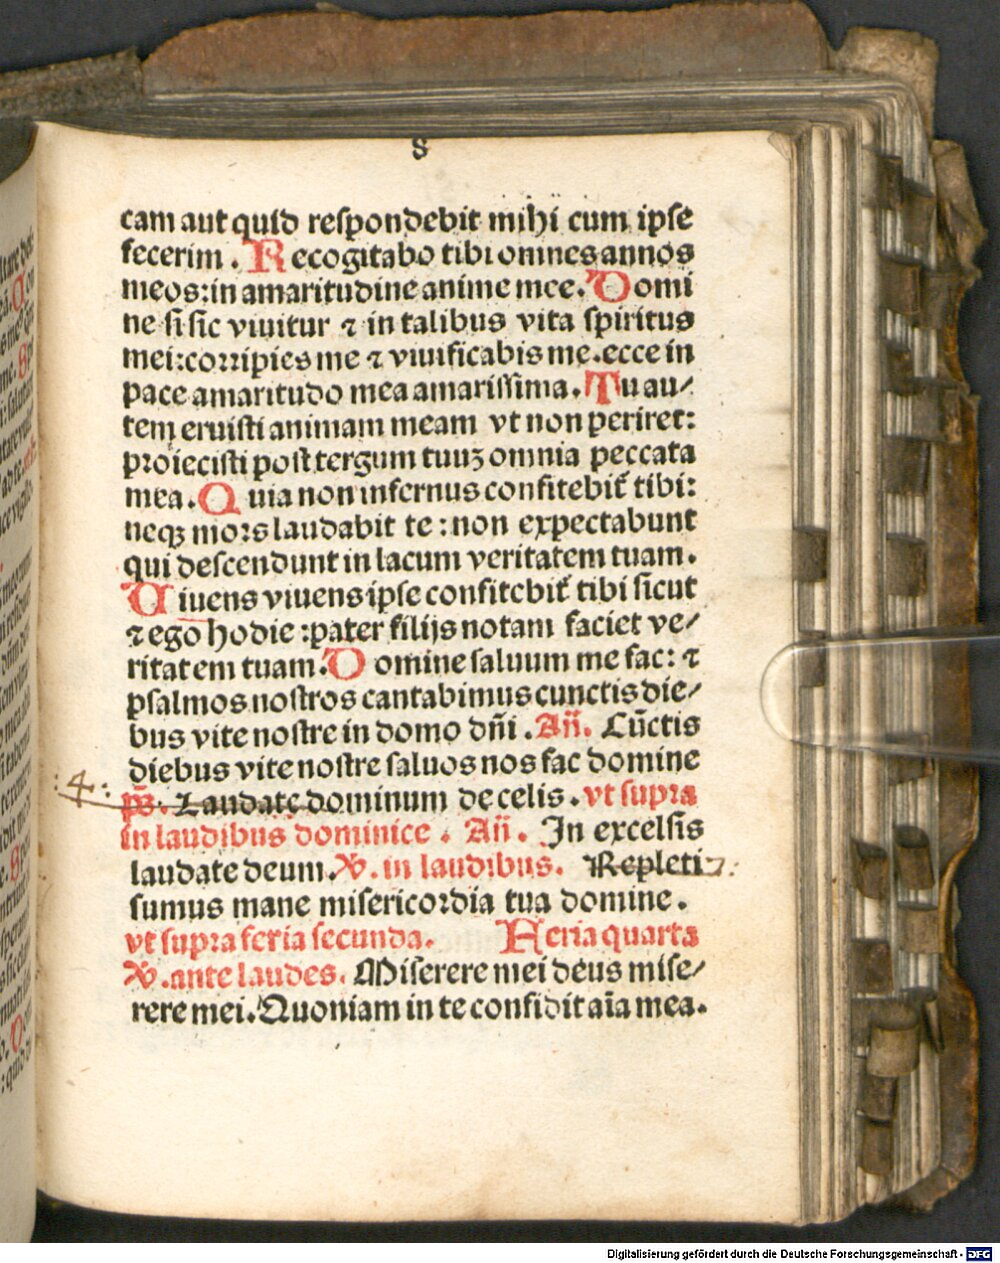 8
cam aut quid reſpondebit mihi cum ipſe
fecerim . Recogitabo tibi omnes annos
meos: in amaritudine anime mee. Domi
ne ſi ſic viuitur ⁊ in talibus vita ſpiritus
mei: corripies me ⁊ viuificabis me. ecce in
pace amaritudo mea amariſſima. Tu au⸗
tem eruiſti animam meam vt non periret:
proieciſti poſt tergum tuuꝫ omnia peccata
mea. Quia non infernus confitebit̃ tibi:
neqꝫ mors laudabit te: non expectabunt
qui deſcendunt in lacum veritatem tuam.
Uiuens viuens ipſe confitebit̃ tibi ſicut
⁊ ego hodie: pater filijs notam faciet ve⸗
ritatem tuam. Domine ſaluum me fac: ⁊
pſalmos noſtros cantabimus cunctis die⸗
bus vite noſtre in domo dñi . Añ. Cũctis
diebus vite noſtre ſaluos nos fac domine
:4: p̃s. Laudate dominum de celis. vt ſupra
in laudibus dominice . Añ. In excelſis
laudate deum. ℣. in laudibus. Repleti
ſumus mane miſericordia tua domine.
vt ſupra feria ſecunda. Feria quarta
℣. ante laudes. Miſerere mei deus miſe⸗
rere mei. Quoniam in te confidit aĩa mea.
Digitalisierung gefördert durch die Deutsche Forschungsgemeinschaft - DFG